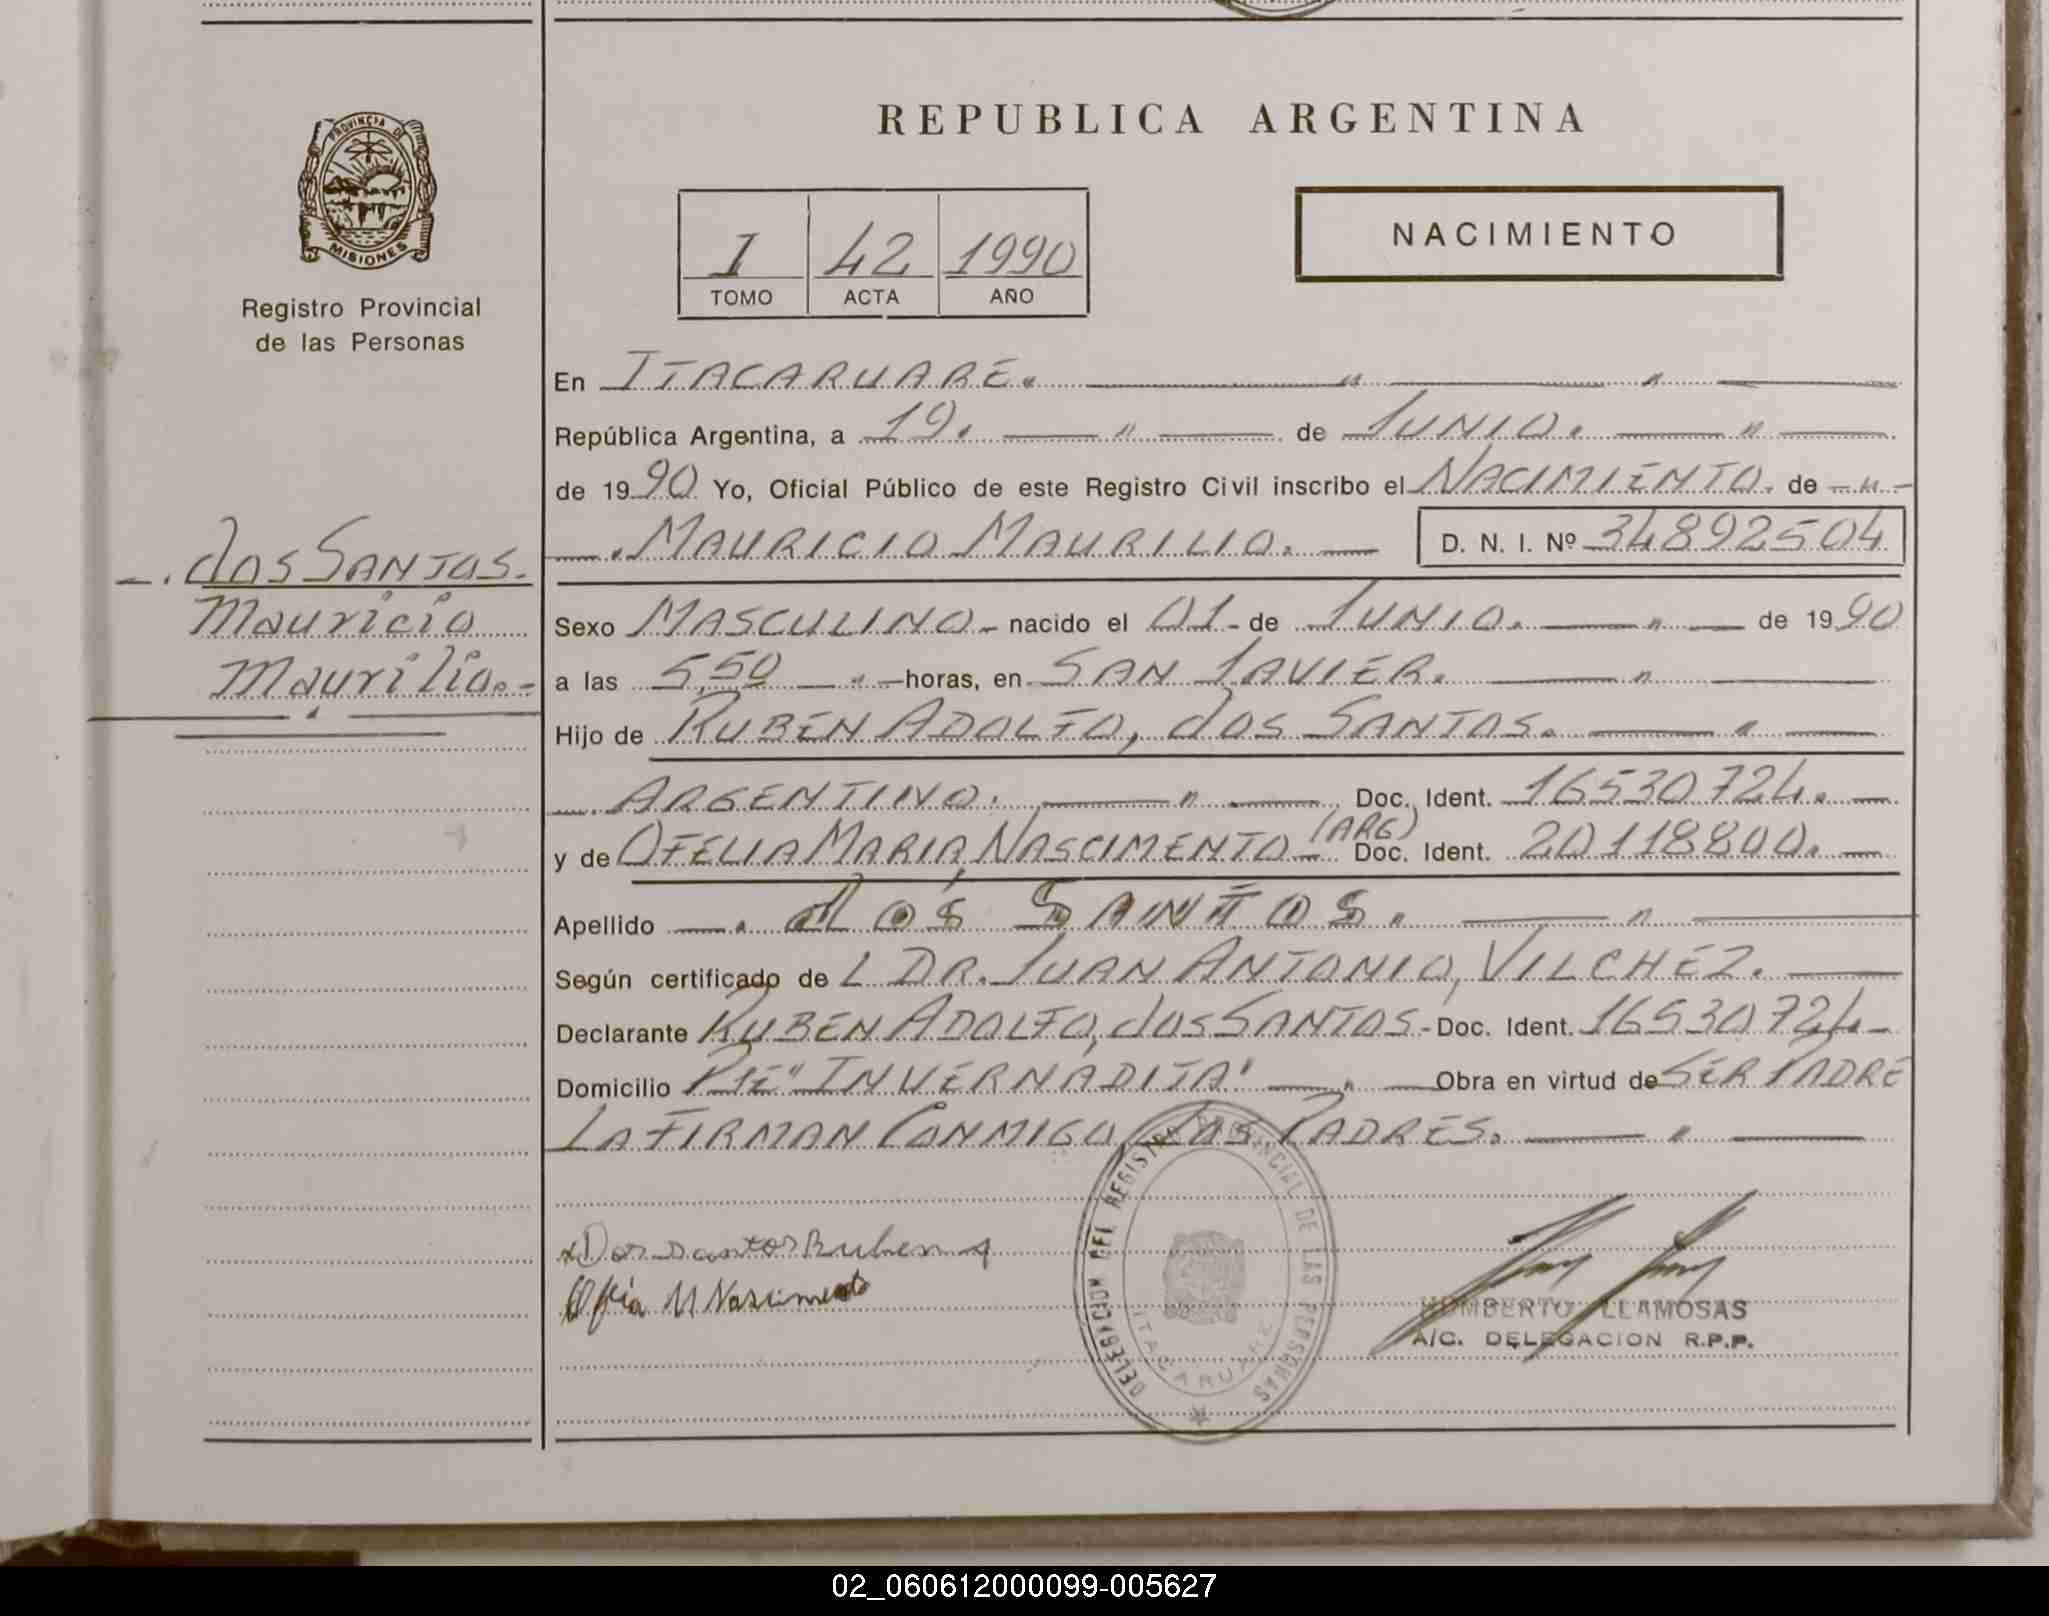 REPUBLICA ARGENTINA
PROVINCIA DE
MISIONES
Registro Provincial
de las Personas
I 42 1990
TOMO ACTA AÑO
NACIMIENTO
En ITACARUARE.
República Argentina, a 19. de JUNIO.
de 1990 Yo, Oficial Público de este Registro Civil inscribo el NACIMIENTO. de
MAURICIO MAURILIO. D. N. I. Nº 34892504
dos SANTOS.
Mauricio
Maurilio.-
Sexo MASCULINO- nacido el 01-de JUNIO. de 1990
a las 5,50 horas, en SAN JAVIER.
Hijo de RUBEN ADOLFO, dos SANTOS.
ARGENTINO. Doc. Ident. 16530724.
y de OFELIA MARIA, NASCIMENTO (ARG) Doc. Ident. 20118800.
Apellido dos SANTOS.
Según certificado de L DR. JUAN ANTONIO, VILCHEZ.
Declarante RUBEN ADOLFO, dos SANTOS-Doc. Ident. 16530724-
Domicilio PJE" INVERNADITA" Obra en virtud de SER PADRE
LA FIRMAN CONMIGO, LOS PADRES.
Dos santos Ruben A
Ofelia M Nascimento
DELEGACION DEL REGISTRO PROVINCIAL DE LAS PERSONAS
ITACARUARE
HUMBERTO LLAMOSAS
A/C. DELEGACION R.P.P.
02_060612000099-005627